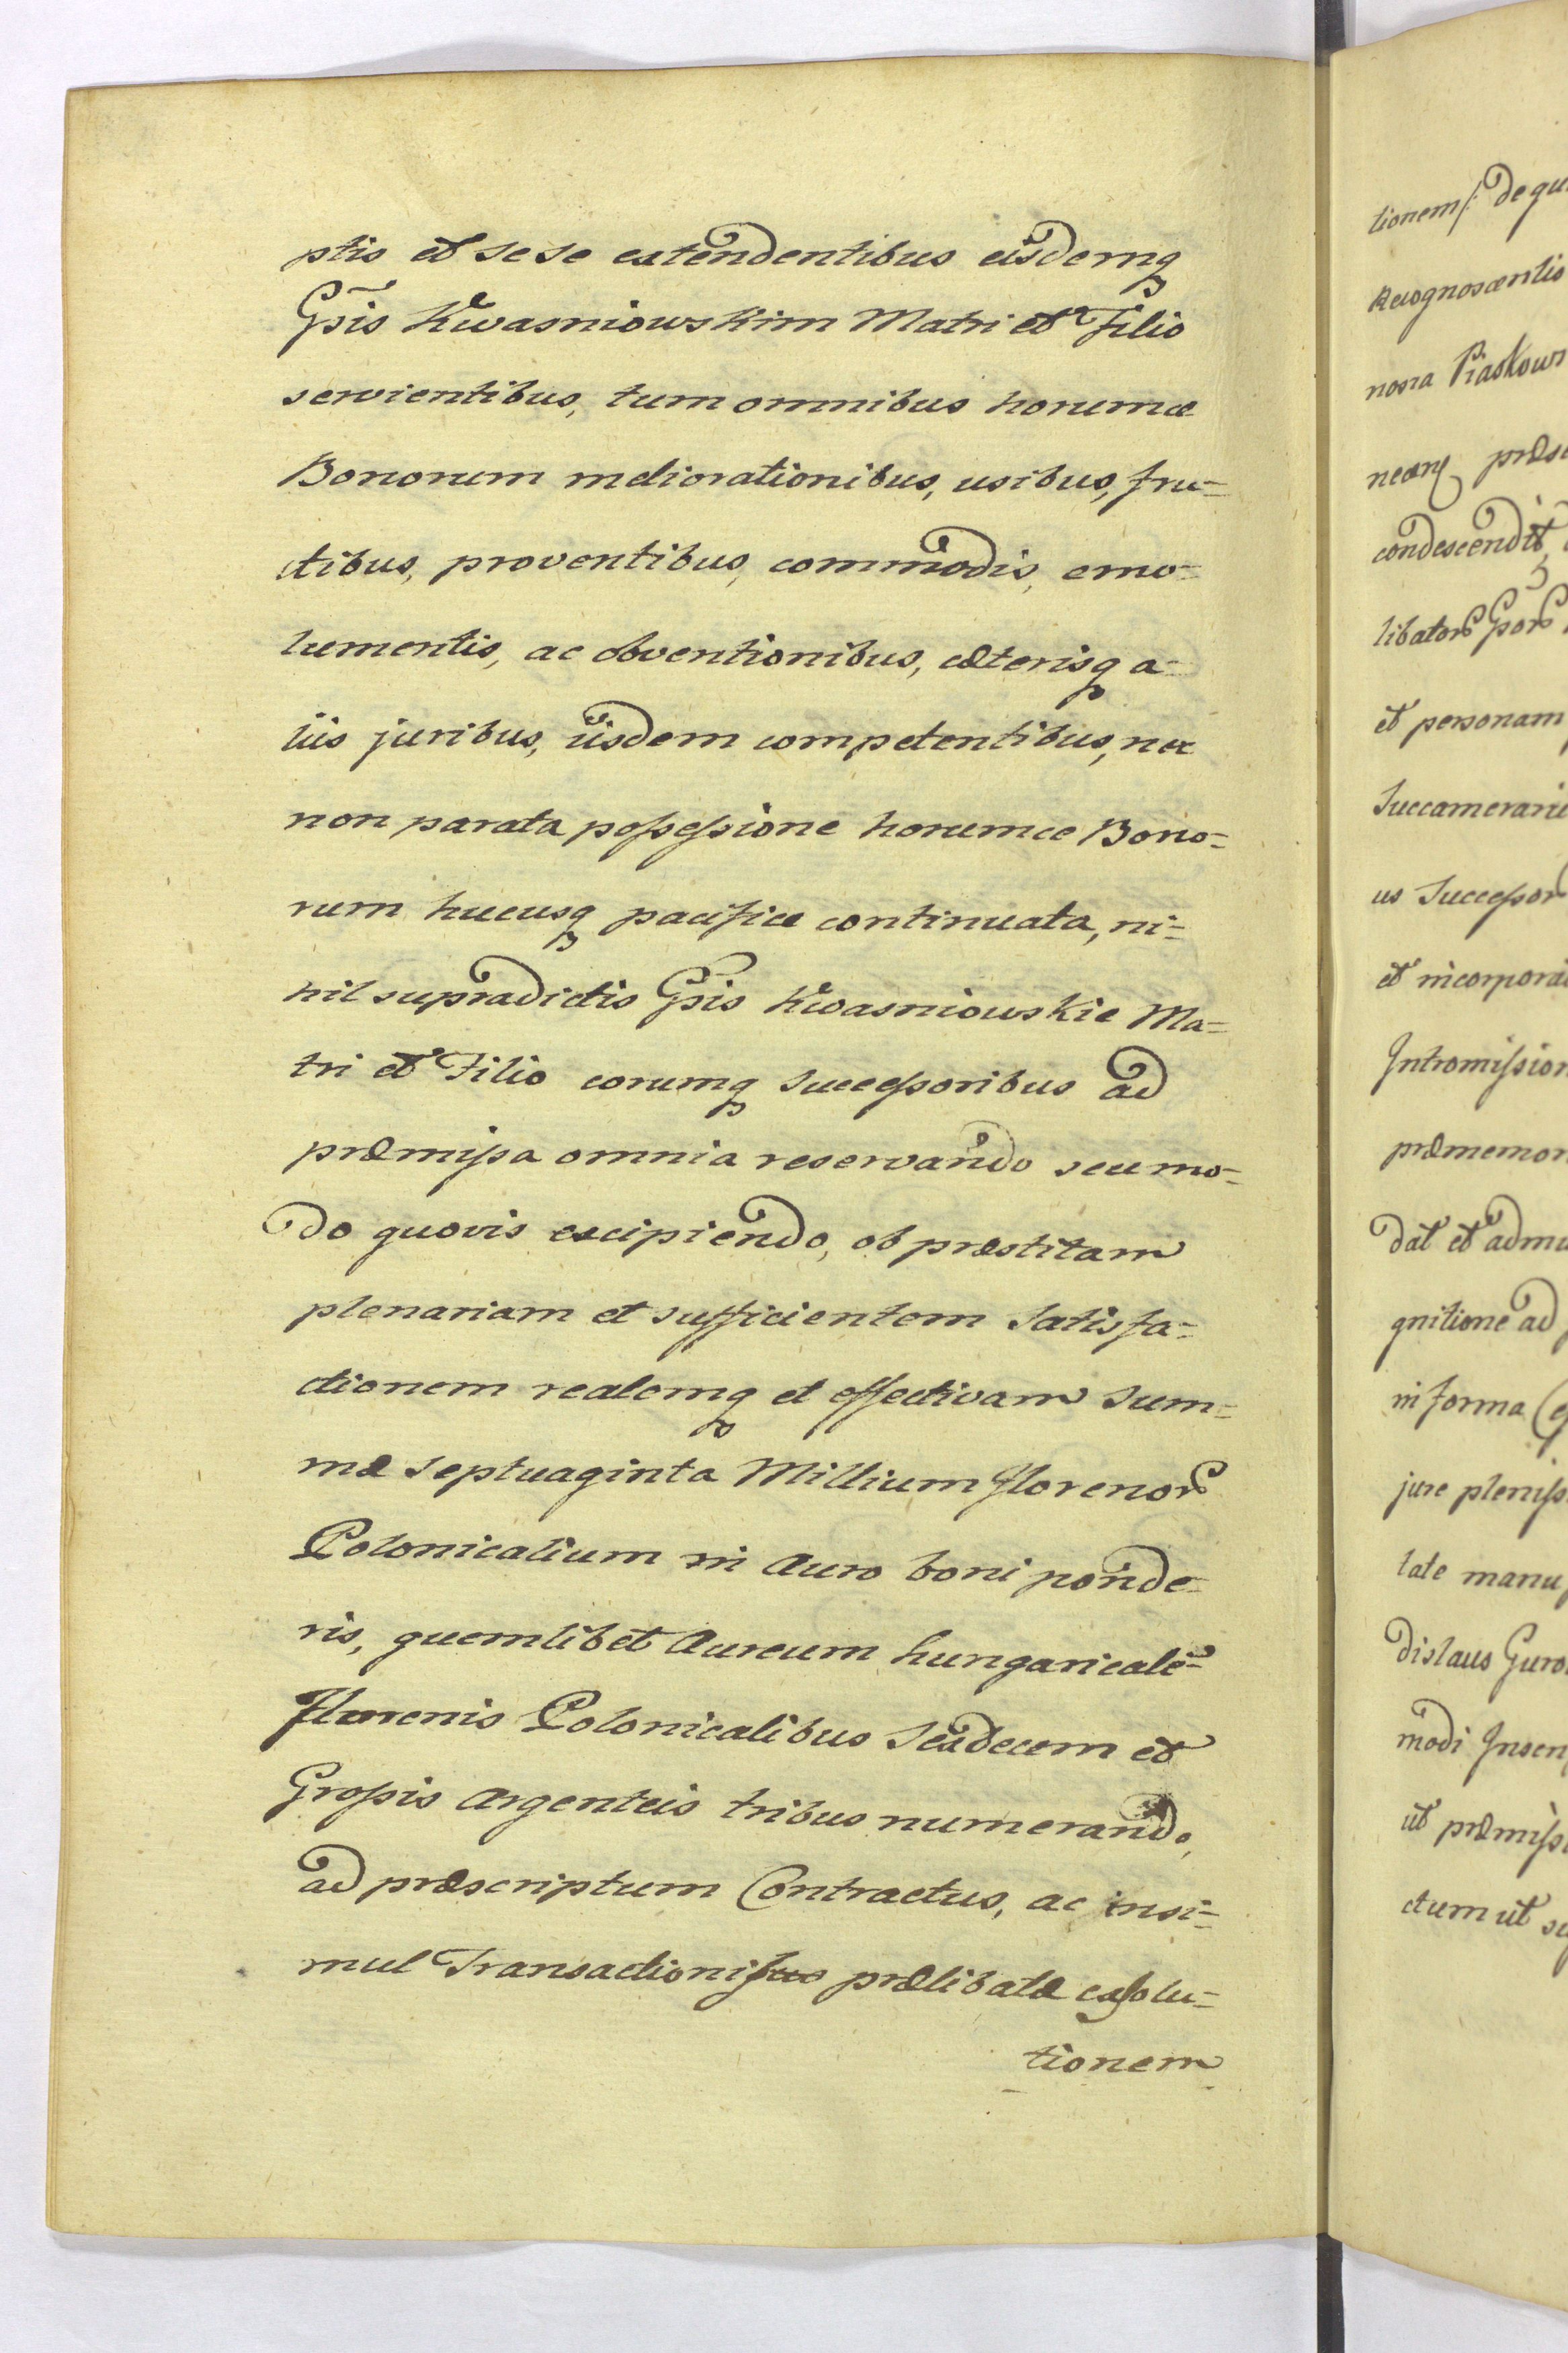 ptis et sese extendentibus eisdemq
Gsis Kwasniowskim Matri et Filio
servientibus, tum omnibus horumce
Bonorum meliorationibus, usibus, fru=
ctibus, proventibus, commodis, emo=
lumentis, ac obventionibus, cæterisq a=
liis juribus, iisdem competentibus, nec
non parata possessione horumce Bono=
rum hucusq pacifice continuata, ni=
hil supradictis Gsis Kwasniowskie Ma=
tri et Filio eorumq Successoribus ad
præmissa omnia reservando seu mo=
do quovis excipiendo, ob præstitam
plenariam et sufficientem Satisfa=
ctionem realemq et effectivam Sum=
mæ Septuaginta Millium Florenor
Polonicalium in Auro boni ponde=
ris, quemlibet Aureum hungaricalē
Florenis Polonicalibus Sexdecem et
Grossis Argenteis tribus numerando,
ad præscriptum Contractus, ac insi=
mul Transactionis prælibatæ exolu=
tionem
tionem/: De qu
Recognoscentis
nosia Piaskows
præs
condescendit,
libator Gsor
et personam
Succamerarii
us Successor
et incorpora
Intromission
præmemor
dat et admi
gnitione ad
in forma
jure pleniss
late manu
dislaus Guro
modi Inscri
ut præmiss
ctum ut su